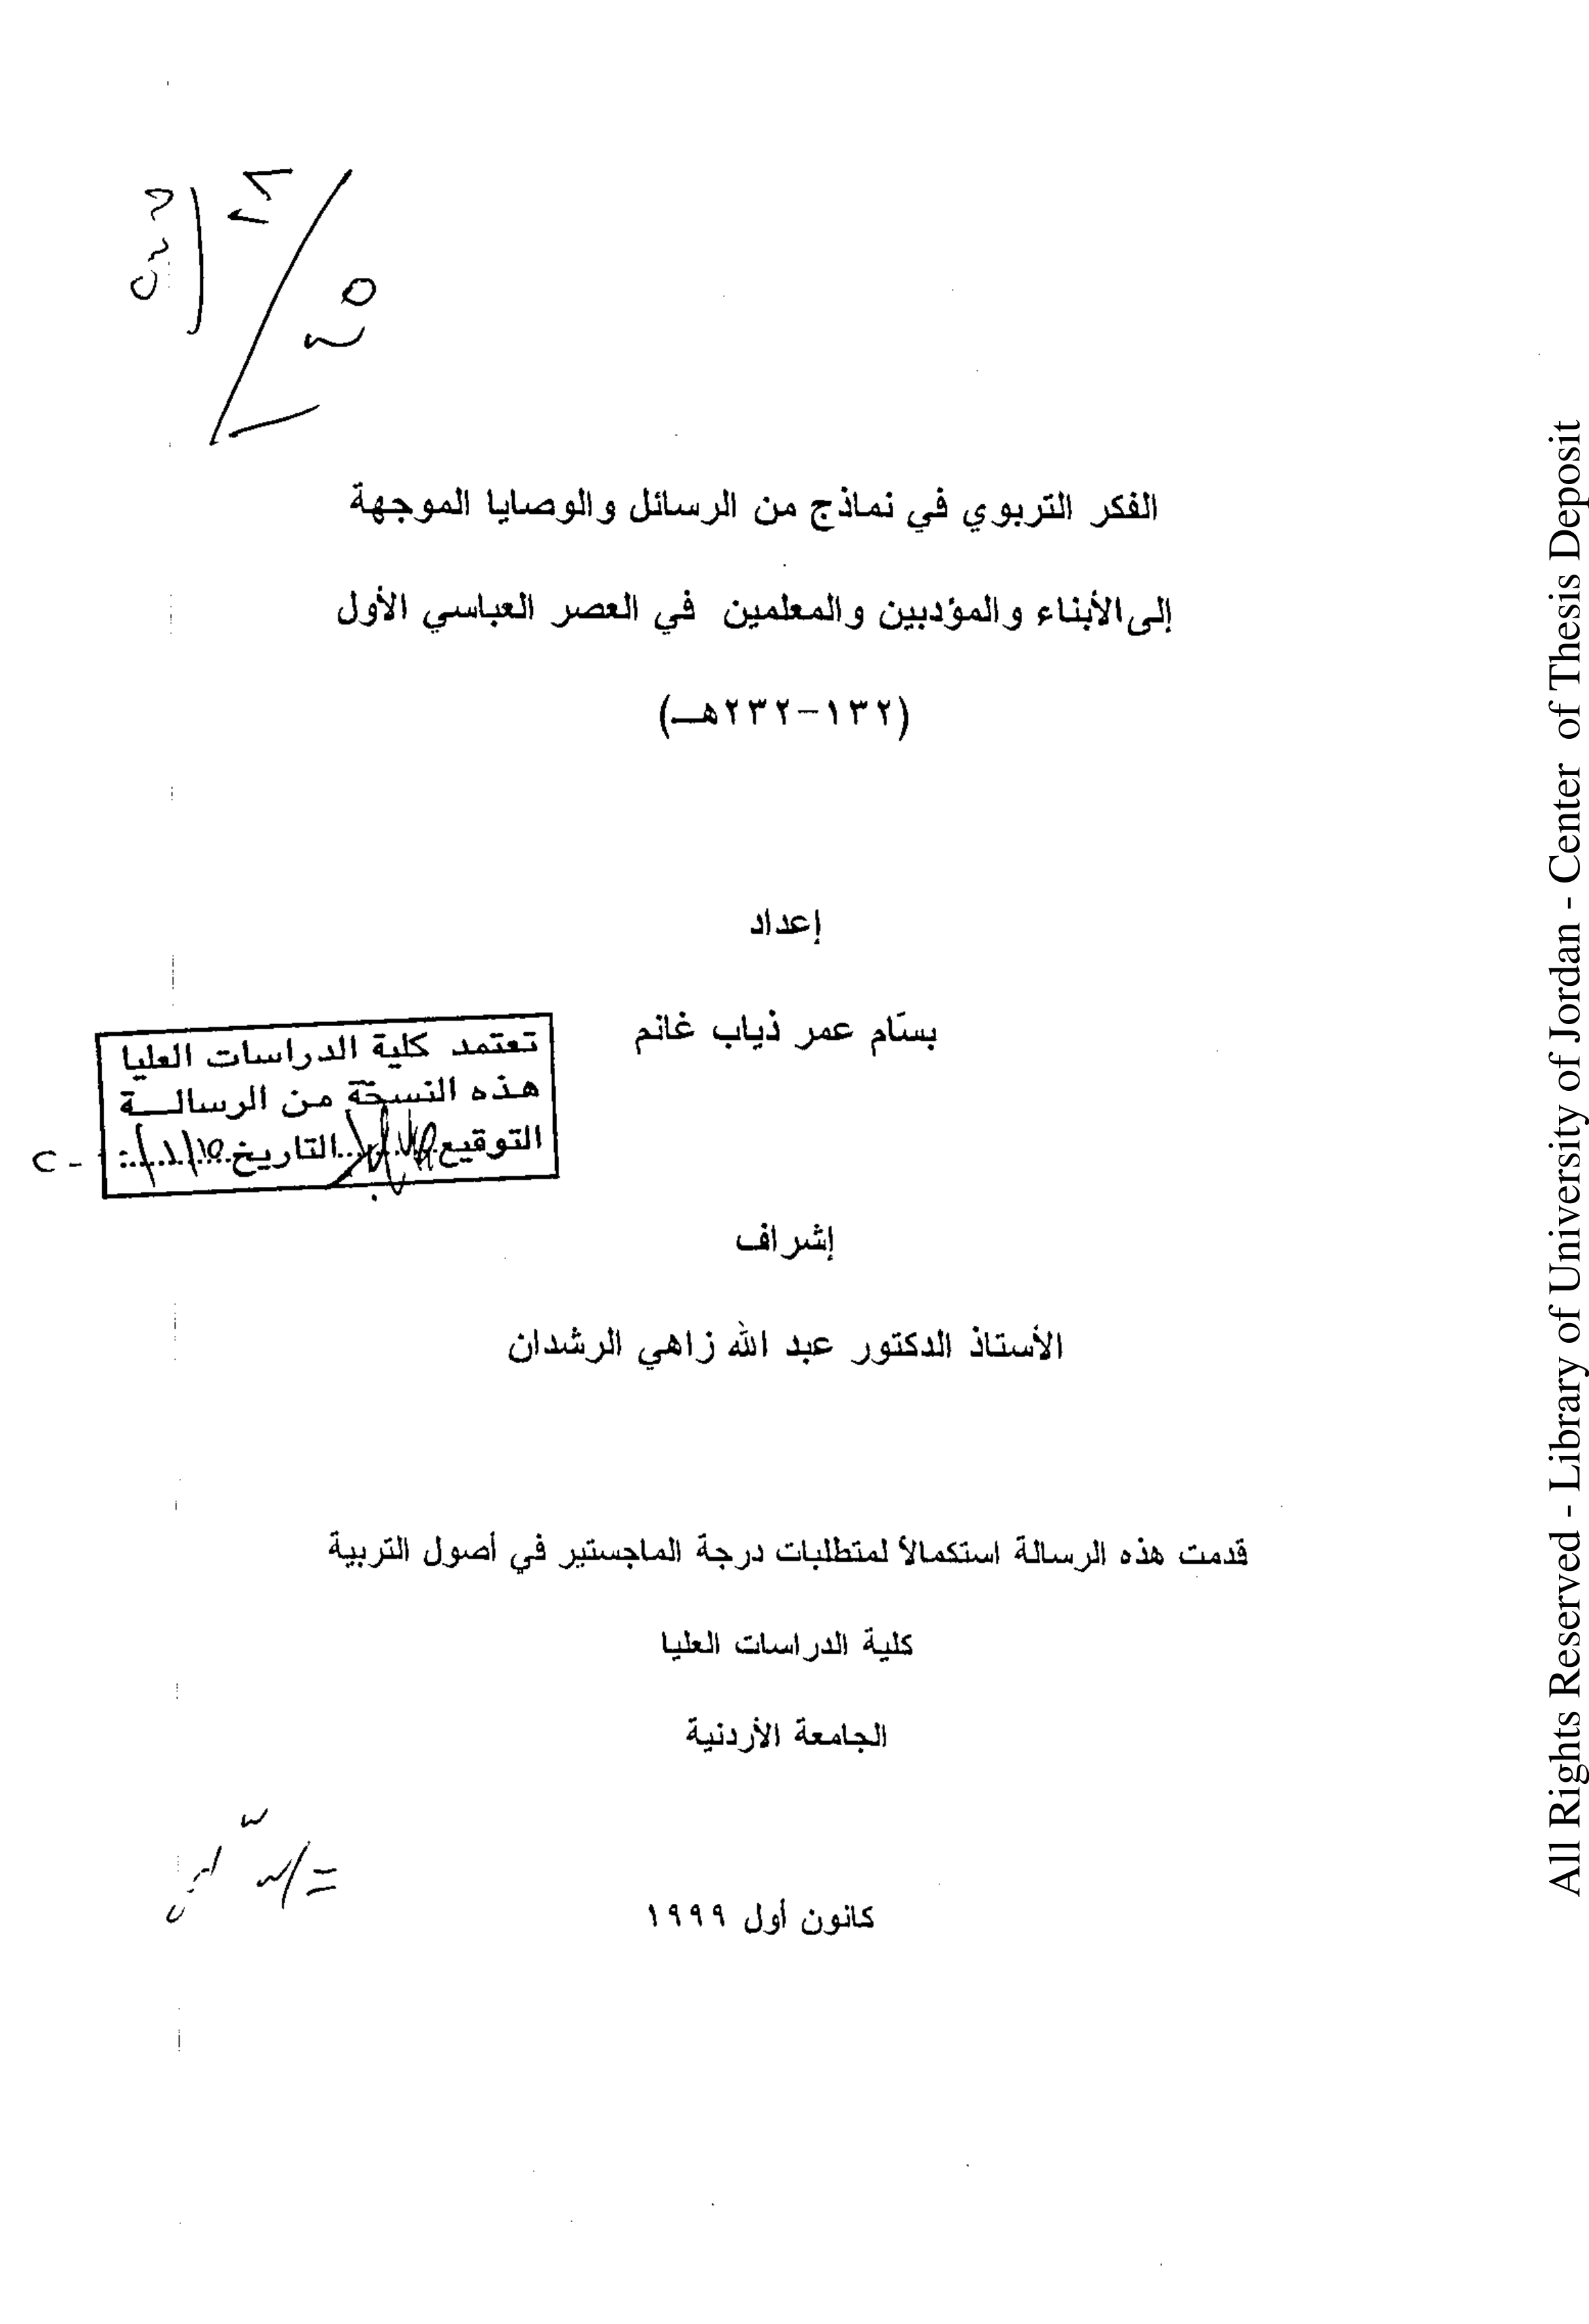 الفكر التربوي في نماذج من الرسائل والوصايا الموجهة
إلى الأبناء والمؤدبين والمعلمين في العصر العباسي الأول
(١٣٢-٢٣٢هـ)
إعداد
بسّام عمر ذياب غانم
تعتمد كلية الدراسات العليا
هذه النسخة من الرسالـــة
التوقيع.......التاريخ
إشراف
الأستاذ الدكتور عبد الله زاهي الرشدان
قدمت هذه الرسالة استكمالاً لمتطلبات درجة الماجستير في أصول التربية
كلية الدراسات العليا
الجامعة الأردنية
كانون أول ١٩٩٩
All Rights Reserved - Library of University of Jordan - Center of Thesis Deposit